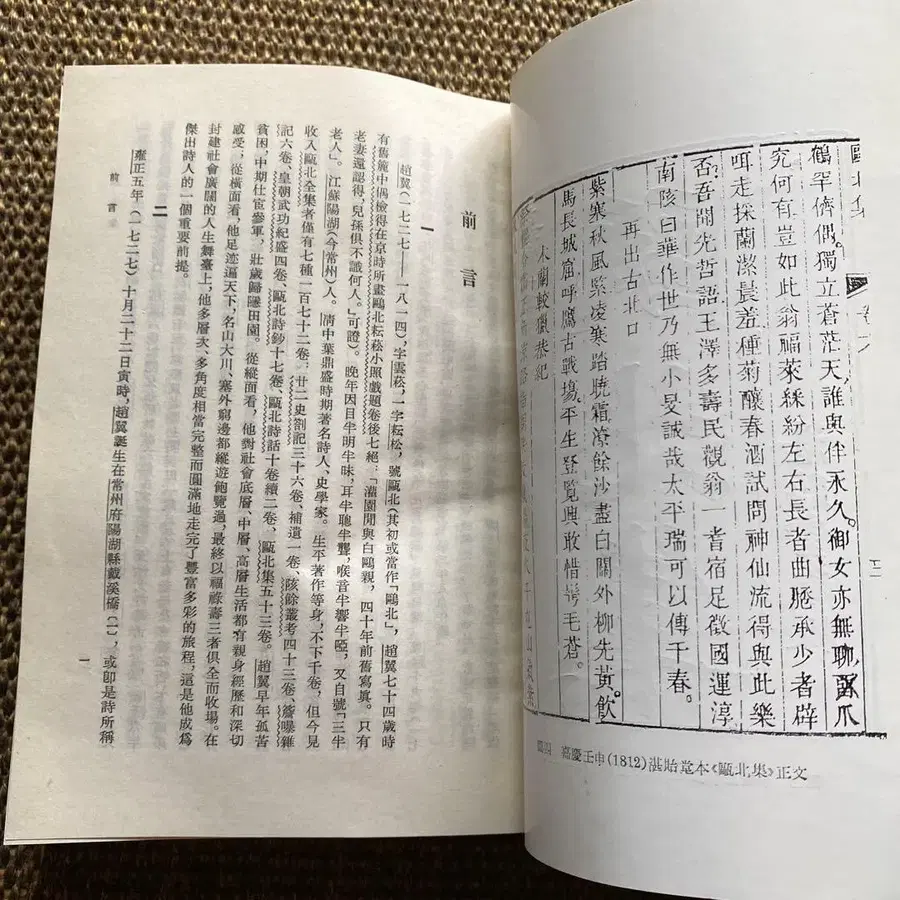 甌北集
鶴罕儕偶。獨立蒼茫天誰與伴永久。御女亦無聊爪
究何有豈如此翁福萊綵紛左右長者曲承少者辟
咡走採蘭潔晨羞種菊釀春酒試問神仙流得與此樂
否吾聞先哲語王澤多壽民觀翁一耆宿足徵國運淳
南陔曰華作世乃無小旻誠哉太平瑞可以傳千春。
再出古北口
紫寒秋風緊凌寒踏曉霜潦餘沙盡白關外柳先黃。飲
馬長城窟呼鷹古戰場。平生登覽興敢惜鬢毛蒼。
木蘭較獵恭紀
嘉慶壬申(1812)湛貽堂本《甌北集》正文
前言
一
趙翼(一七二七——一八一四),字雲菘,一字耘松,號甌北(其初或當作「鷗北」,趙翼七十四歲時
有舊簏中偶檢得在京時所畫鷗北耘菘小照戲題卷後七絕:「灌園閒與白鷗親,四十年前舊寫真。只有
老妻還認得,兒孫俱不識何人。」可證)。晚年因目半明半昧,耳半聰半聾,喉音半響半啞,又自號「三半
老人」。江蘇陽湖(今常州)人。清中葉鼎盛時期著名詩人、史學家。生平著作等身,不下千卷,但今見
收入甌北全集者僅有七種一百七十二卷:廿二史劄記三十六卷、補遺一卷、陔餘叢考四十三卷、簷曝雜
記六卷、皇朝武功紀盛四卷、甌北詩鈔十七卷、甌北詩話十卷續二卷、甌北集五十三卷。趙翼早年孤苦
貧困,中期仕宦參軍,壯歲歸隱田園。從縱面看,他對社會底層、中層、高層生活都有親身經歷和深切
感受;從橫面看,他足迹遍天下,名山大川、塞外窮邊都縱遊飽覽過,最終以福祿壽三者俱全而收場。在
封建社會廣闊的人生舞臺上,他多層次、多角度相當完整而圓滿地走完了豐富多彩的旅程,這是他成爲
傑出詩人的一個重要前提。
二
雍正五年(一七二七)十月二十二日寅時,趙翼誕生在常州府陽湖縣戴溪橋(一),或卽是詩所稱
前言
一